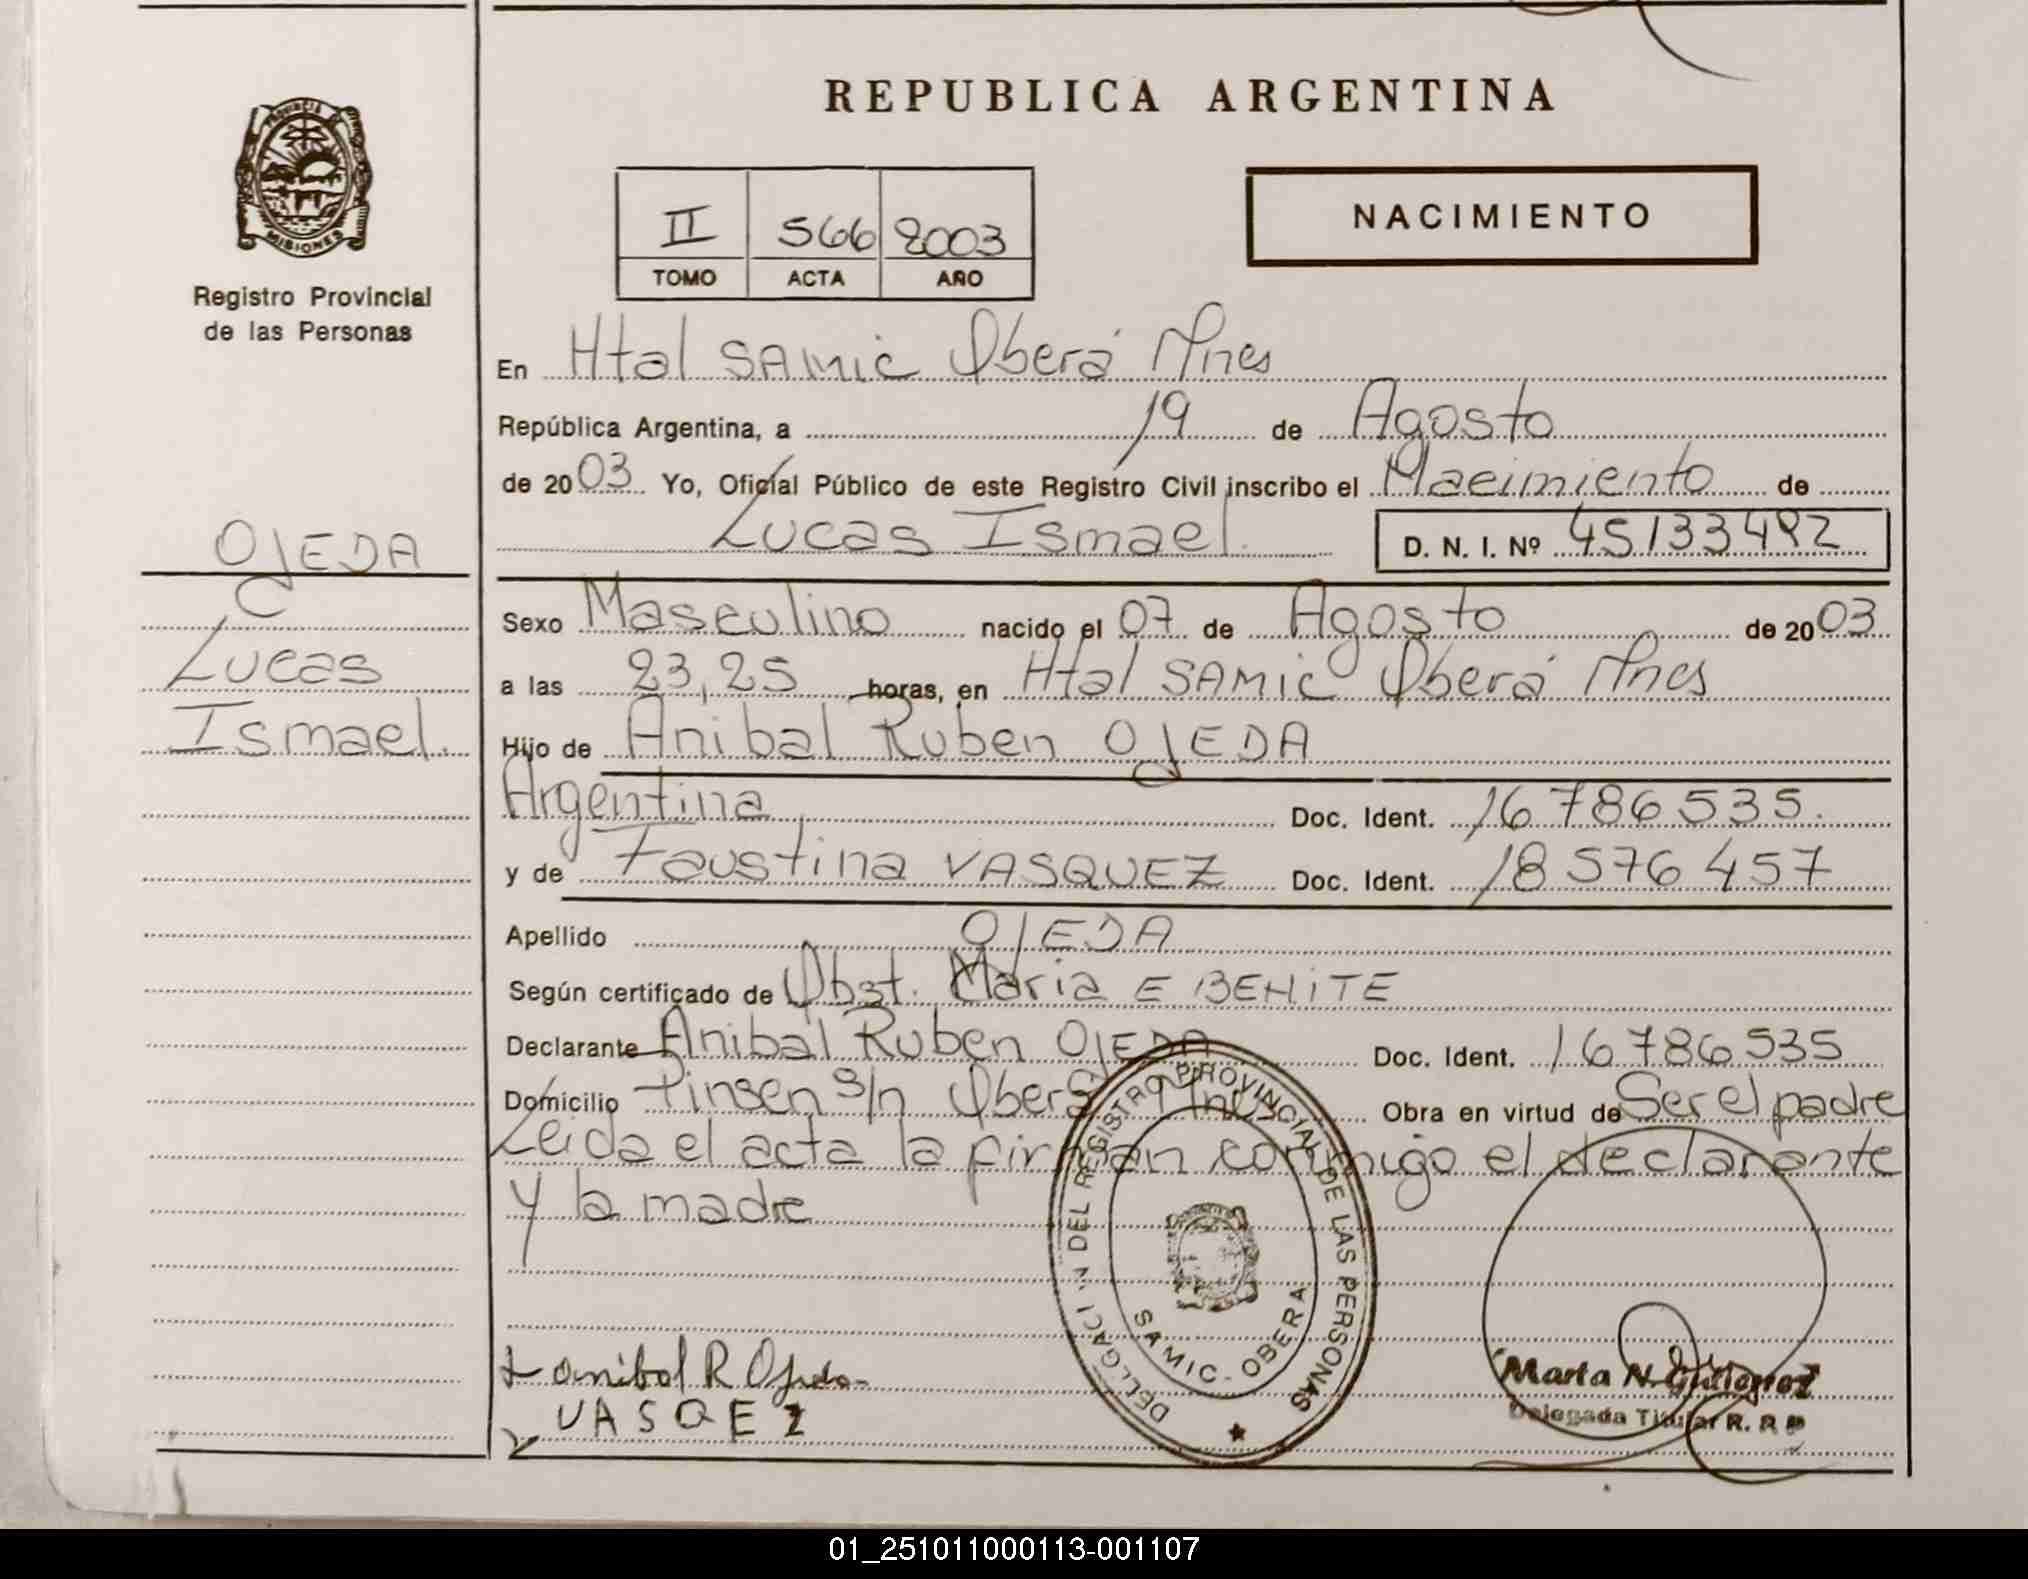 REPUBLICA ARGENTINA
PROVINCIA
MISIONES
Registro Provincial
de las Personas
II 566 2003
TOMO ACTA AÑO
NACIMIENTO
En Htal SAMIC Oberá Mnes
República Argentina, a 19 de Agosto
de 2003 Yo, Oficial Público de este Registro Civil inscribo el Nacimiento de
Lucas Ismael. D. N. I. Nº 45133492
OJEDA
Lucas
Ismael.
Sexo Masculino nacido el 07 de Agosto de 2003
a las 23,25 horas, en Htal SAMIC Oberá Mnes
Hijo de Anibal Ruben OJEDA
Argentina Doc. Ident. 16786535.
y de Faustina VASQUEZ Doc. Ident. 18576457
Apellido OJEDA
Según certificado de Obst. Maria E BENITE
Declarante Anibal Ruben OJEDA Doc. Ident. 16786535
Domicilio Pinsen s/n Oberá Mnes Obra en virtud de Ser el padre
Leida el acta la firman conmigo el declarante
y la madre
DELEGACION DEL REGISTRO PROVINCIAL DE LAS PERSONAS
SAMIC - OBERA
anibal R Ojeda
VASQEZ
Marta N. Gutierrez
Delegada Titular R. R P
01_251011000113-001107